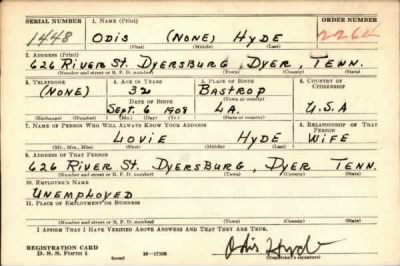 SERIAL NUMBER 1. NAME (Print) ORDER NUMBER
1448 ODIS (NONE) HYDE
(First) (Middle) (Last)
2. ADDRESS (Print)
626 RIVER ST. DYERSBURG, DYER, TENN.
(Number and street or R. F. D. number) (Town) (County) (State)
3. TELEPHONE 4. AGE IN YEARS 5. PLACE OF BIRTH 6. COUNTRY OF CITIZENSHIP
(NONE) 32 BASTROP
DATE OF BIRTH (Town or county)
SEPT. 6 1908 LA. U.S.A
(Exchange) (Number) (Mo.) (Day) (Yr.) (State or country)
7. NAME OF PERSON WHO WILL ALWAYS KNOW YOUR ADDRESS 8. RELATIONSHIP OF THAT PERSON
LOVIE HYDE WIFE
(Mr., Mrs., Miss) (First) (Middle) (Last)
9. ADDRESS OF THAT PERSON
626 RIVER ST. DYERSBURG, DYER TENN.
(Number and street or R. F. D. number) (Town) (County) (State)
10. EMPLOYER'S NAME
UNEMPLOYED
11. PLACE OF EMPLOYMENT OR BUSINESS
(Number and street or R. F. D. number) (Town) (County) (State)
I AFFIRM THAT I HAVE VERIFIED ABOVE ANSWERS AND THAT THEY ARE TRUE.
REGISTRATION CARD Odis Hyde
D. S. S. Form 1 (over) (Registrant's signature)